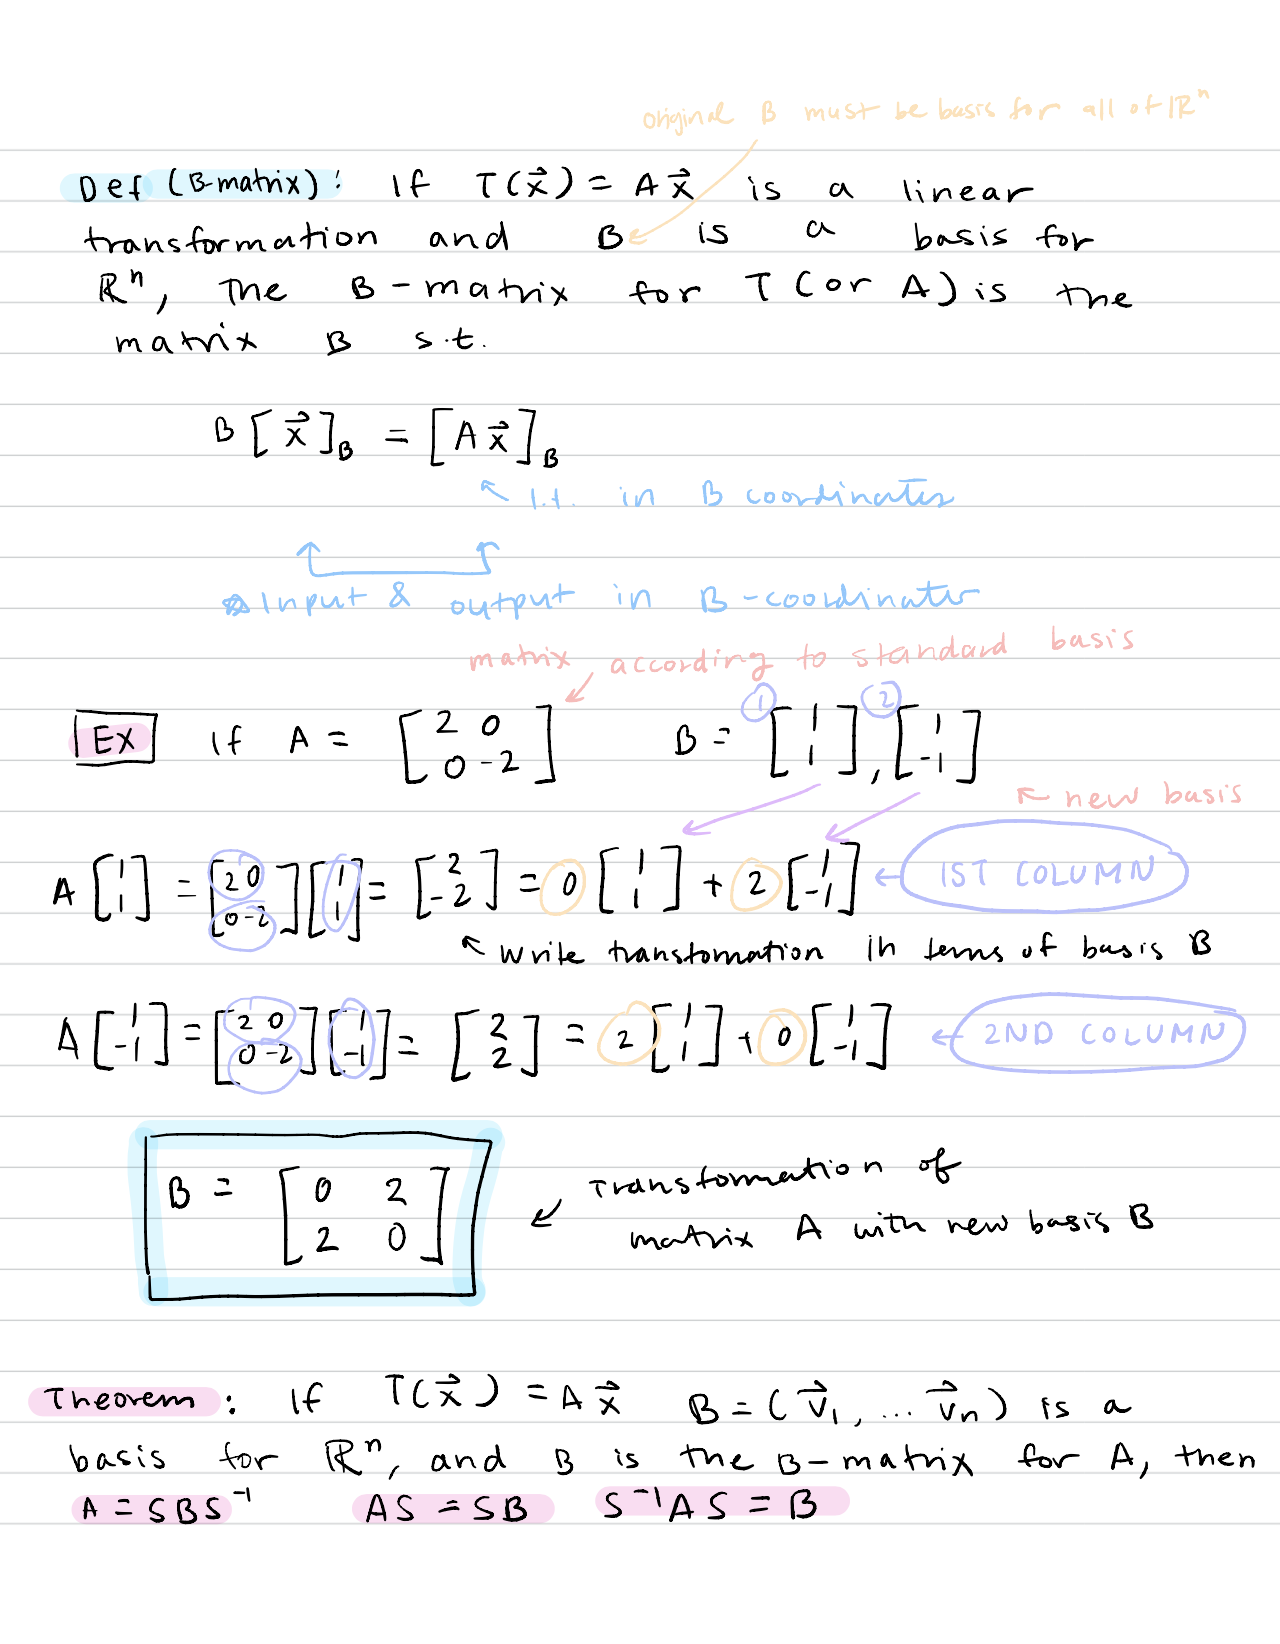 original B must be basis for all of ℝⁿ
Def (B-matrix): If T(x⃗) = Ax⃗ is a linear
transformation and B is a basis for
ℝⁿ, the B-matrix for T (or A) is the
matrix B s.t.
B[x⃗]_B = [Ax⃗]_B
↖ l.t. in B coordinates
☆ Input & output in B-coordinates
matrix according to standard basis
Ex If A = [2 0; 0 -2] B = ① [1; 1], ② [1; -1]
← new basis
A[1; 1] = [2 0; 0 -2][1; 1] = [2; -2] = 0[1; 1] + 2[1; -1] ← 1ST COLUMN
↖ write transfomation in terms of basis B
A[1; -1] = [2 0; 0 -2][1; -1] = [2; 2] = 2[1; 1] + 0[1; -1] ← 2ND COLUMN
B = [0 2; 2 0]
↙ Transformation of
matrix A with new basis B
Theorem: If T(x⃗) = Ax⃗ B = (v⃗₁, ... v⃗ₙ) is a
basis for ℝⁿ, and B is the B-matrix for A, then
A = SBS⁻¹ AS = SB S⁻¹AS = B